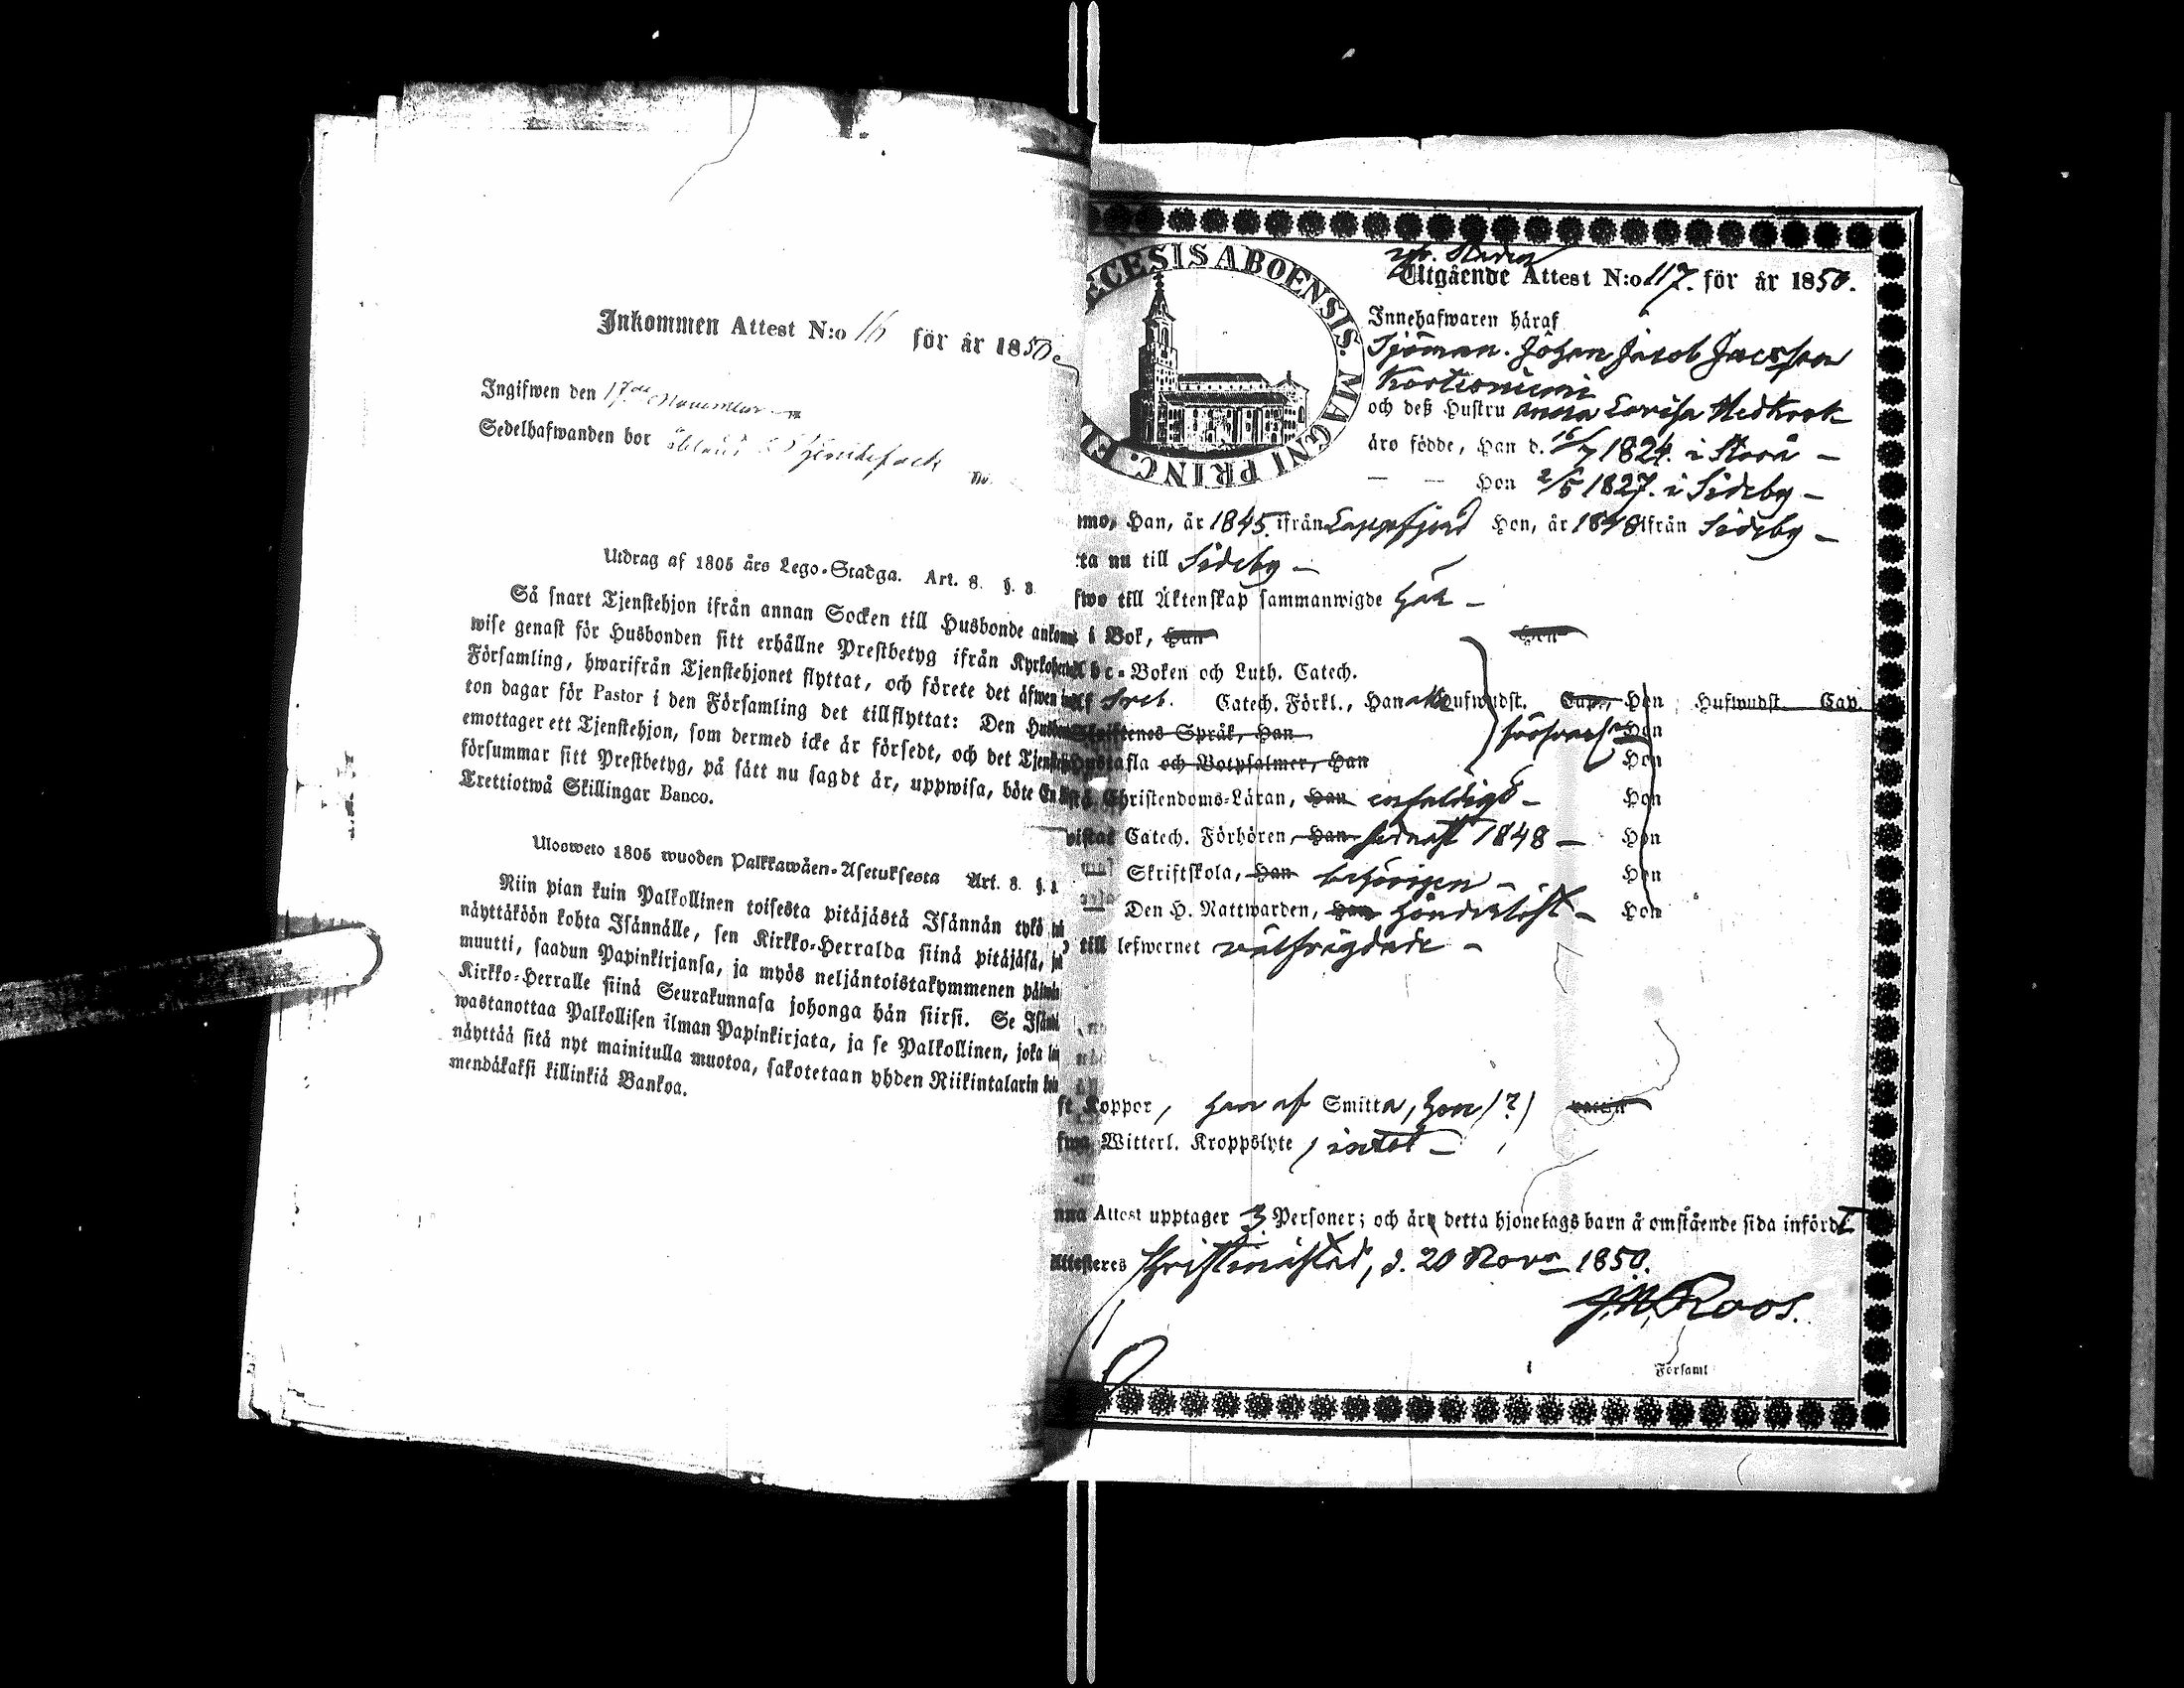 Inkommen Attest N:o 16 för år 1850
Ingifwen den 17de November
Sedelhafwanden bor
Utdrag af 1805 års Lego-Stadga. Art. 8. §. 8
Så snart Tjenstehjon ifrån annan Socken till Husbonde
wise genast för Husbonden sitt erhållne Prestbetyg ifrån
Församling, hwarifrån Tjenstehjonet flyttat, och förete det äfwen
ton dagar för Pastor i den Församling det tillflyttat: Den
emottager ett Tjenstehjon, som dermed icke är försedt, och det
försummar sitt Prestbetyg, på sätt nu sagdt är, uppwisa, böte En
Trettiotwå Skillingar Banco.
Ulosweto 1805 wuoden Palkkawäen-Asetuksesta Art. 8. §.
Niin pian kuin Palkollinen toisesta pitäjästä Isännän tykö
näyttäköön kohta Isännälle, sen Kirkko-Herralda siinä pitäjäsä,
muutti, saadun Papinkirjansa, ja myös neljäntoistakymmenen
Kirkko-Herralle siinä Seurakunnasa johonga hän siirsi. Se
wastanottaa Palkollisen ilman Papinkirjata, ja se Palkollinen, joka
näyttää sitä nyt mainitulla muotoa, sakotetaan yhden Riikintalarin
mendäkaksi killinkiä Bankoa.
ECESIS ABOENSIS. MAGNI PRINC.
Utgående Attest N:o 117. för år 1850.
Innehafwaren häraf
Sjöman. Johan Jacob Jacobsson
Kortesniemi
och deß Hustru Anna Lovisa Hedkrok
äro födde, Han d. 15/7 1824. i Storå –
— — Hon 2/5 1827. i Sideby –
Han, år 1845. ifrån Lappfjerd Hon, år 1848 ifrån Sideby –
nu till Sideby –
till Äktenskap sammanwigde här –
i Bok, Han Hon
Boken och Luth. Catech.
Sveb. Catech. Förkl., Han Hufwudst. Cap., Hon Hufwudst. Cap.
Språk, Han Hon
och Botpsalmer, Han Hon
Christendoms-Läran, Han enfaldigt – Hon
Catech. Förhören, Han sednast 1848 – Hon
Skriftskola, Han behörigen – Hon
Den H. Nattwarden, Han Hon
till lefwernet wälfrägdade –
Koppor, han af Smitta, hon (?)
Witterl. Kroppslyte, intet –
Attest upptager 3 Personer; och äro detta hjonelags barn å omstående sida infördt
Attesteres Christinæstad, d. 20 Novr 1850.
J.N. Roos.
i Församl